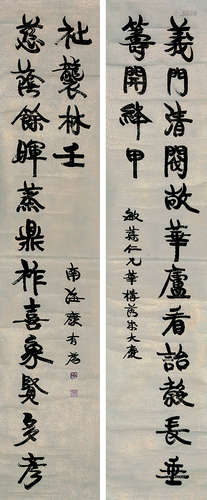 義門清閥敞華廬看詒穀長垂
籌開絳甲
敏仁兄華構落成大慶
慈蔭餘暉蒸鼎祚喜象賢多彥
祉襲林壬
南海康有為